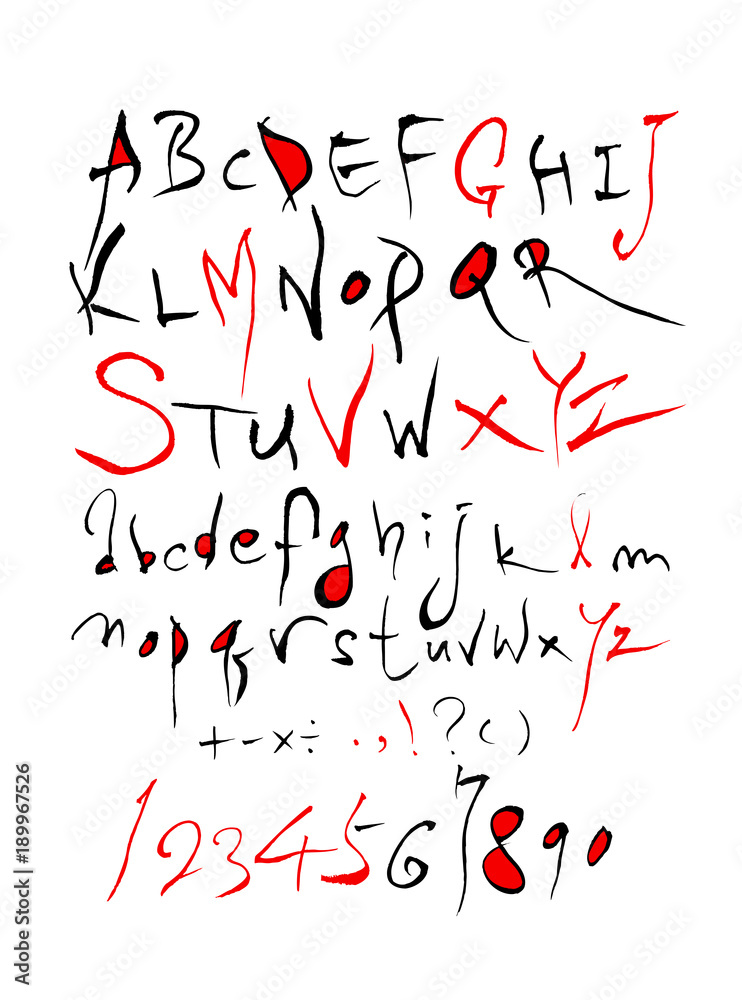 ABCDEFGHIJ
KLMNOPQR
STUVWXYZ
abcdefghijklm
nopqrstuvwxyz
+-×÷.,!?()
1234567890
Adobe Stock | #189967526